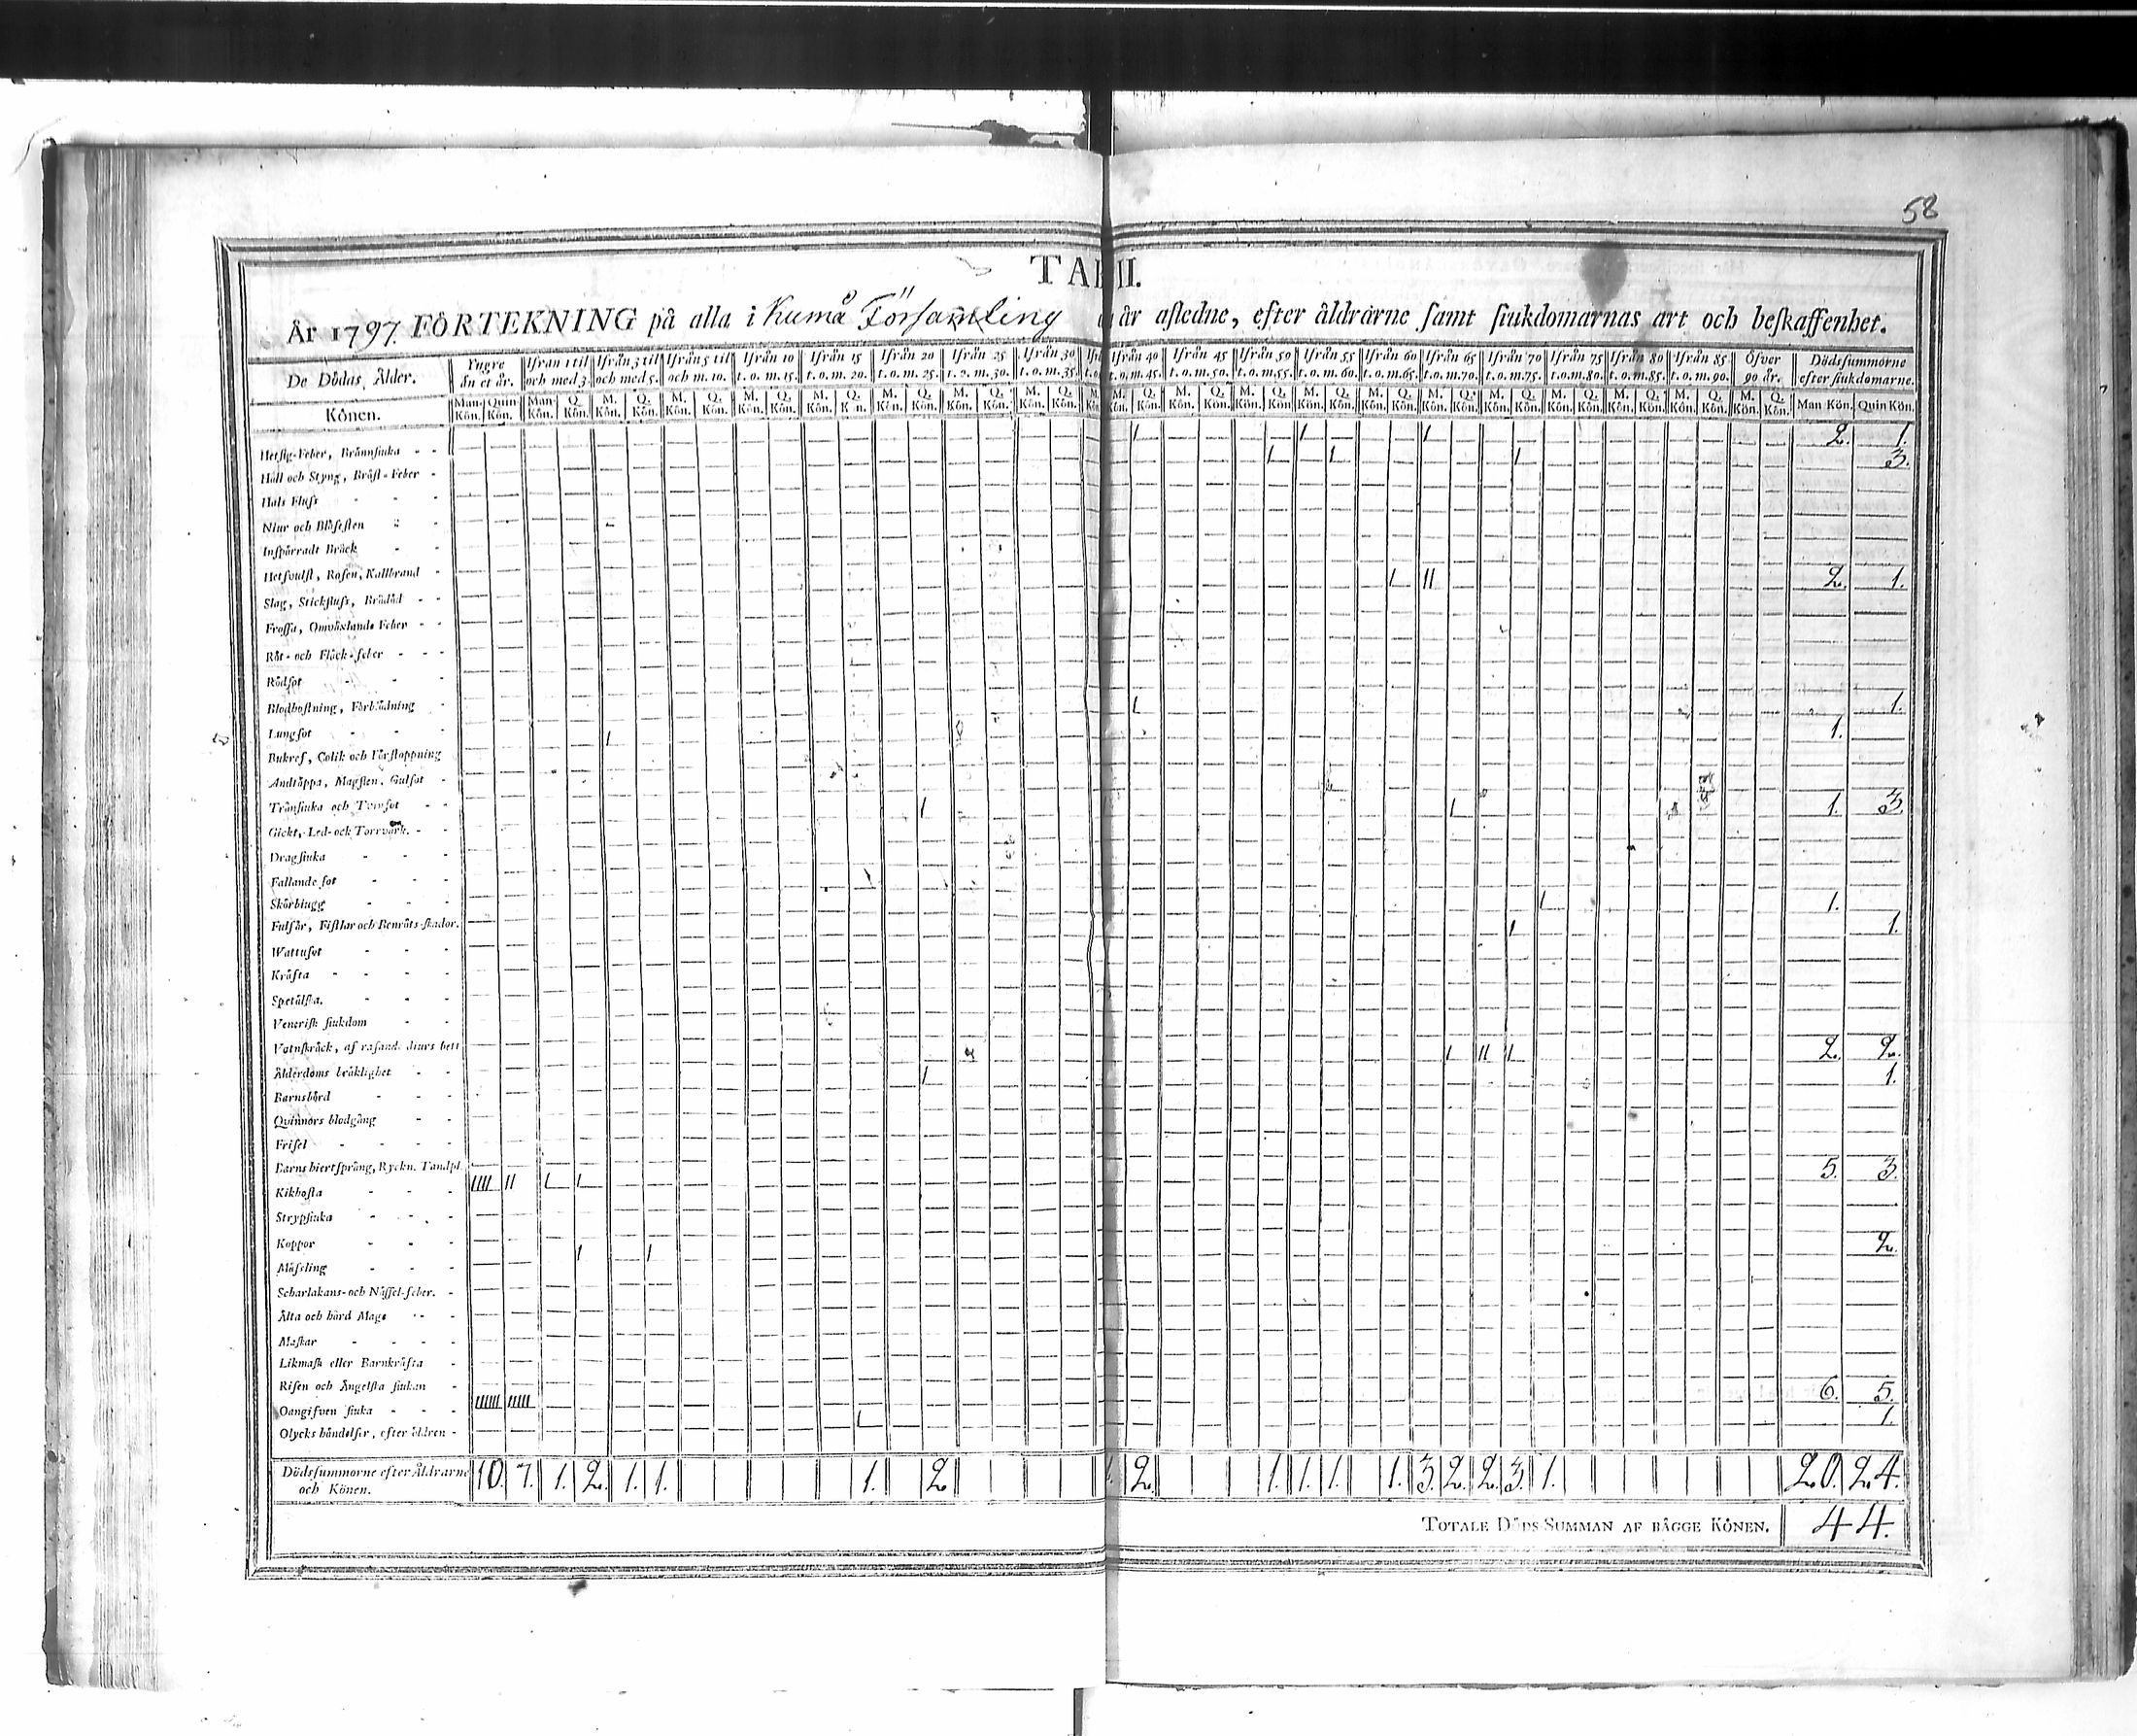 58
TAB II.
År 1797. FÖRTEKNING på alla i Kumå Församling år afledne, efter åldrarne samt siukdomarnas art och beskaffenhet.
De Dödas Ålder. Yngre än et år. Ifrån 1 til och med 3. Ifrån 3 til och med 5. Ifrån 5 til och m. 10. Ifrån 10 t. o. m. 15. Ifrån 15 t. o. m. 20. Ifrån 20 t. o. m. 25. Ifrån 25 t. o. m. 30. Ifrån 30 t. o. m. 35. Ifrån 40 t. o. m. 45. Ifrån 45 t. o. m. 50. Ifrån 50 t. o. m. 55. Ifrån 55 t. o. m. 60. Ifrån 60 t. o. m. 65. Ifrån 65 t. o. m. 70. Ifrån 70 t. o. m. 75. Ifrån 75 t. o. m. 80. Ifrån 80 t. o. m. 85. Ifrån 85 t. o. m. 90. Öfver 90 år. Dödssummorne efter siukdomarne.
Könen. Man Kön. Quin Kön. Man Kön. Q. Kön. M. Kön. Q. Kön. M. Kön. Q. Kön. M. Kön. Q. Kön. M. Kön. Q. Kön. M. Kön. Q. Kön. M. Kön. Q. Kön. M. Kön. Q. Kön. M. Kön. Q. Kön. M. Kön. Q. Kön. M. Kön. Q. Kön. M. Kön. Q. Kön. M. Kön. Q. Kön. M. Kön. Q. Kön. M. Kön. Q. Kön. M. Kön. Q. Kön. M. Kön. Q. Kön. M. Kön. Q. Kön. M. Kön. Q. Kön. Man Kön. Quin Kön.
Hetsig-Feber, Brännsiuka 1 1 1 2. 1.
Håll och Styng, Bröst-Feber 1 1 1 3.
Hals Fluss
Niur och Blåsesten
Inspärradt Bråck
Hetsvulst, Rosen, Kallbrand
Slag, Stickfluss, Brådöd 1 11 2. 1.
Frossa, Omväxlande Feber
Röt- och Fläck-feber
Rödsot
Blodhostning, Förblödning
Lungsot 1 1.
Bukref, Colik och Förstoppning 1 1.
Andtäppa, Magsten, Gulsot
Trånsiuka och Tvinsot 1 1 1. 3.
Gickt, Led- och Torrvärk.
Dragsiuka
Fallande sot
Skörbiugg 1 1.
Fulsår, Fistlar och Benröts-skador. 1 1.
Wattusot
Kräfta
Spetälska.
Venerisk siukdom
Vatnskräck, af rasand. diurs bett
Ålderdoms bräklighet 1 11 1 2. 2.
Barnsbörd 1 1.
Qvinnors blodgång
Frisel
Barns hiertsprång, Ryckn. Tandpl.
Kikhosta 1111 11 1 1 5. 3.
Strypsiuka
Koppor
Mäsling 1 1 2.
Scharlakans- och Nässel-feber.
Älta och hård Mage
Maskar
Likmask eller Barnkräfta
Risen och Ängelska siukan
Oangifven siuka 111111 11111 6. 5.
Olycks händelser, efter öldren 1 1.
Dödssummorne efter Åldrarne och Könen. 10. 7. 1. 2. 1. 1. 1. 2 1. 2. 1. 1. 1. 1. 3. 2. 2. 3. 1. 20. 24.
TOTALE DÖDS-SUMMAN AF BÅGGE KÖNEN. 44.